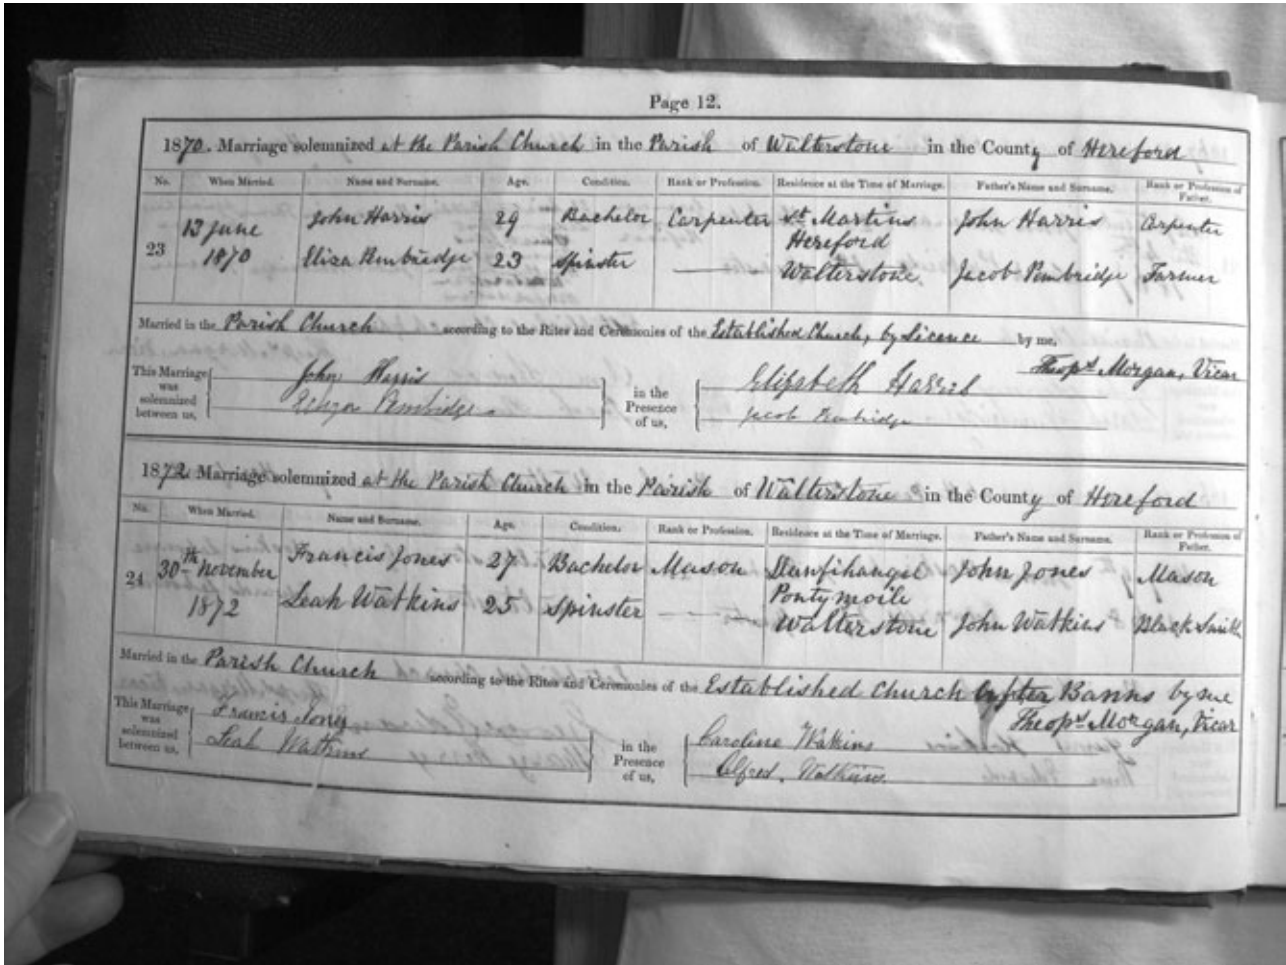 Page 12.
1870. Marriage solemnized at the Parish Church in the Parish of Walterstone in the County of Hereford
No. When Married. Name and Surname. Age. Condition. Rank or Profession. Residence at the Time of Marriage. Father's Name and Surname. Rank or Profession of Father.
23 13 June 1870 John Harris 29 Bachelor Carpenter St Martins Hereford John Harris Carpenter
Eliza Pembridge 23 Spinster — Walterstone. Jacob Pembridge Farmer
Married in the Parish Church according to the Rites and Ceremonies of the Established Church, by Licence by me,
Theops. Morgan, Vicar
This Marriage was solemnized between us, John Harris in the Presence of us, Elizabeth Harris
Eliza Pembridge Jacob Pembridge
1872 Marriage solemnized at the Parish Church in the Parish of Walterstone in the County of Hereford
No. When Married. Name and Surname. Age. Condition. Rank or Profession. Residence at the Time of Marriage. Father's Name and Surname. Rank or Profession of Father.
24 30th November 1872 Francis Jones 27 Bachelor Mason Pontymoile John Jones Mason
Leah Watkins 25 Spinster — Walterstone John Watkins Black Smith
Married in the Parish Church according to the Rites and Ceremonies of the Established Church after Banns by me
Theops. Morgan, Vicar
This Marriage was solemnized between us, Francis Jones in the Presence of us, Caroline Watkins
Leah Watkins Alfred. Watkins.